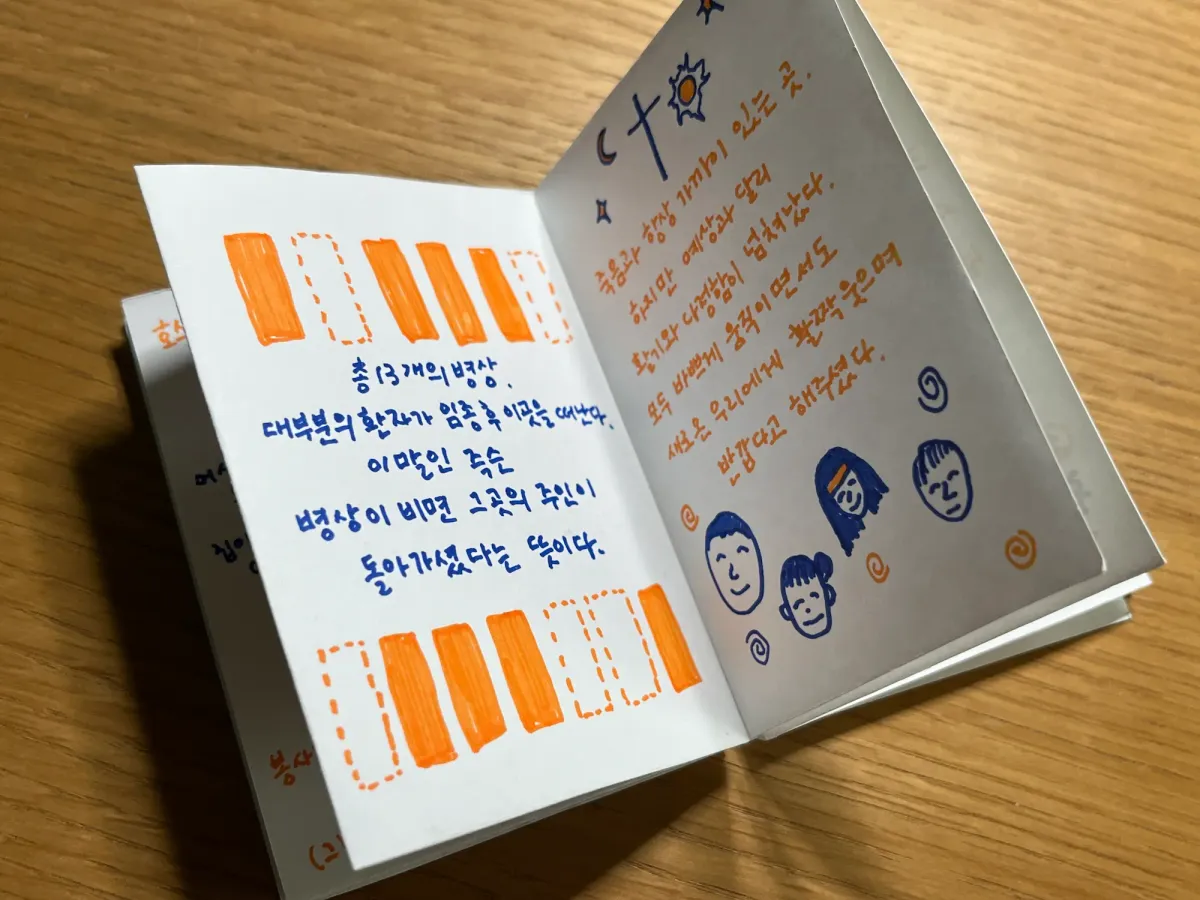 총 13개의 병상.
대부분의 환자가 임종 후 이곳을 떠난다.
이 말인 즉슨
병상이 비면 그곳의 주인이
돌아가셨다는 뜻이다.
죽음과 항상 가까이 있는 곳.
하지만 예상과 달리
활기와 다정함이 넘쳐났다.
모두 바쁘게 움직이면서도
새로온 우리에게 활짝 웃으며
반갑다고 해주셨다.
봉사